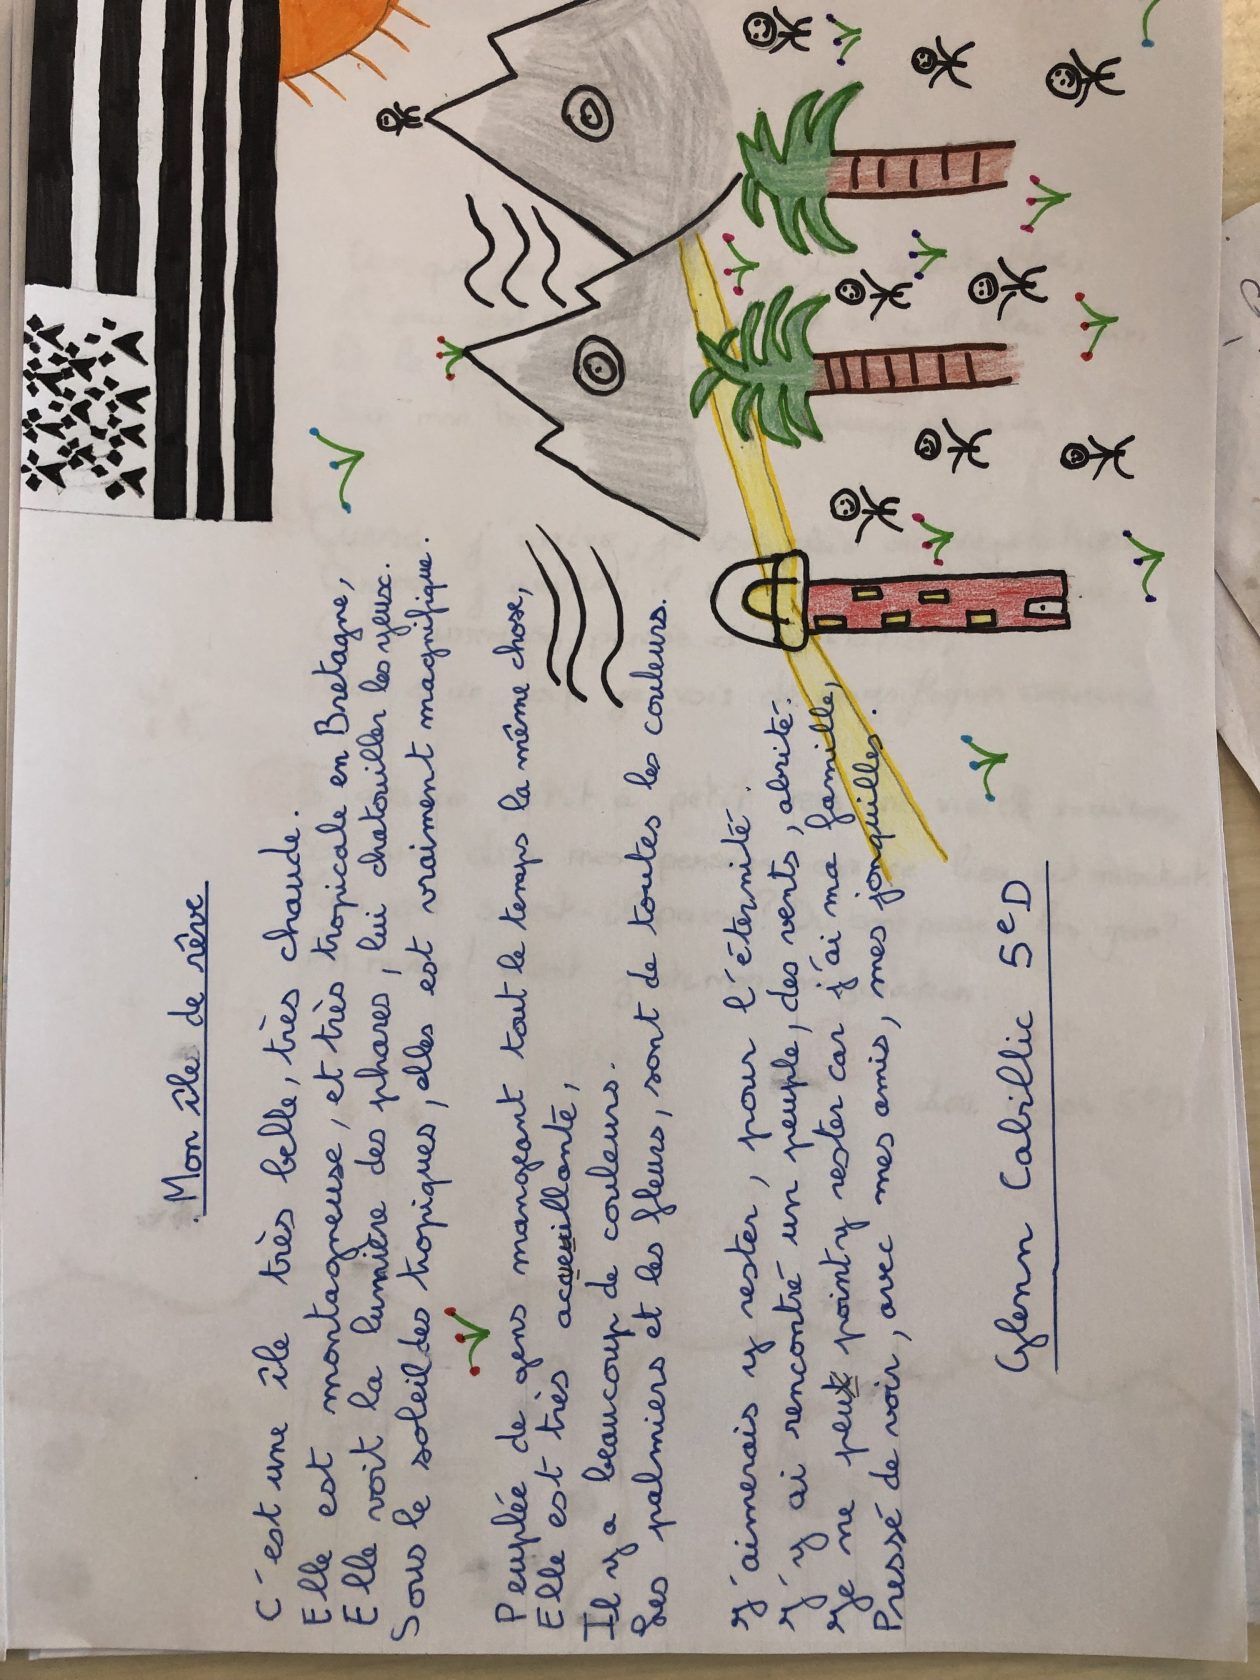 Mon île de rêve
C'est une île très belle, très chaude.
Elle est montagneuse, et très tropicale en Bretagne,
Elle voit la lumière des phares, lui chatouiller les yeux.
Sous le soleil des tropiques, elles est vraiment magnifique.
Peuplée de gens mangeant tout le temps la même chose,
Elle est très accueillante,
Il y a beaucoup de couleurs.
Les palmiers et les fleurs, sont de toutes les couleurs.
J'aimerais y rester, pour l'éternité.
J'y ai rencontré un peuple, des vents, abrité.
Je ne peux point y rester car j'ai ma famille,
Pressé de voir, avec mes amis, mes jonquilles.
Glenn Cabillic 5eD